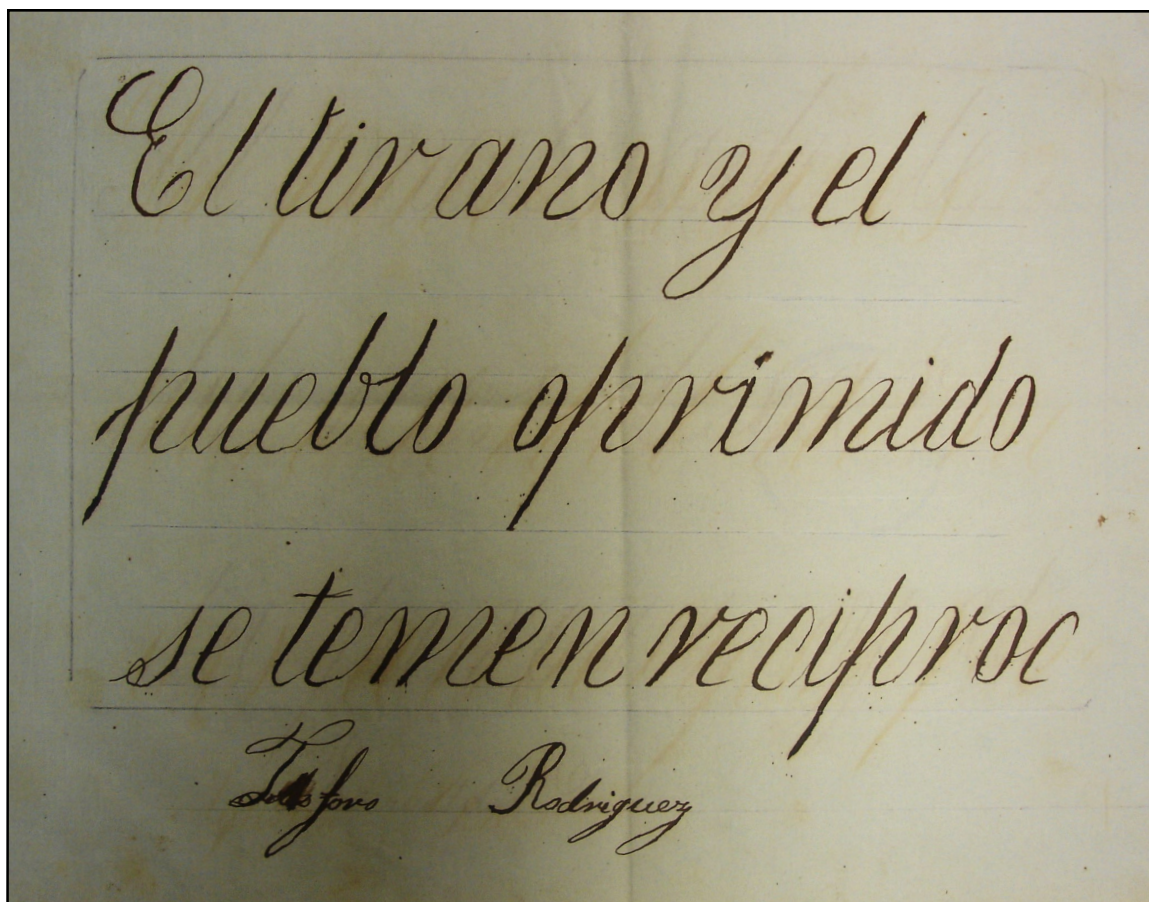 El tirano y el
pueblo oprimido
se temen reciproc
Rodriguez